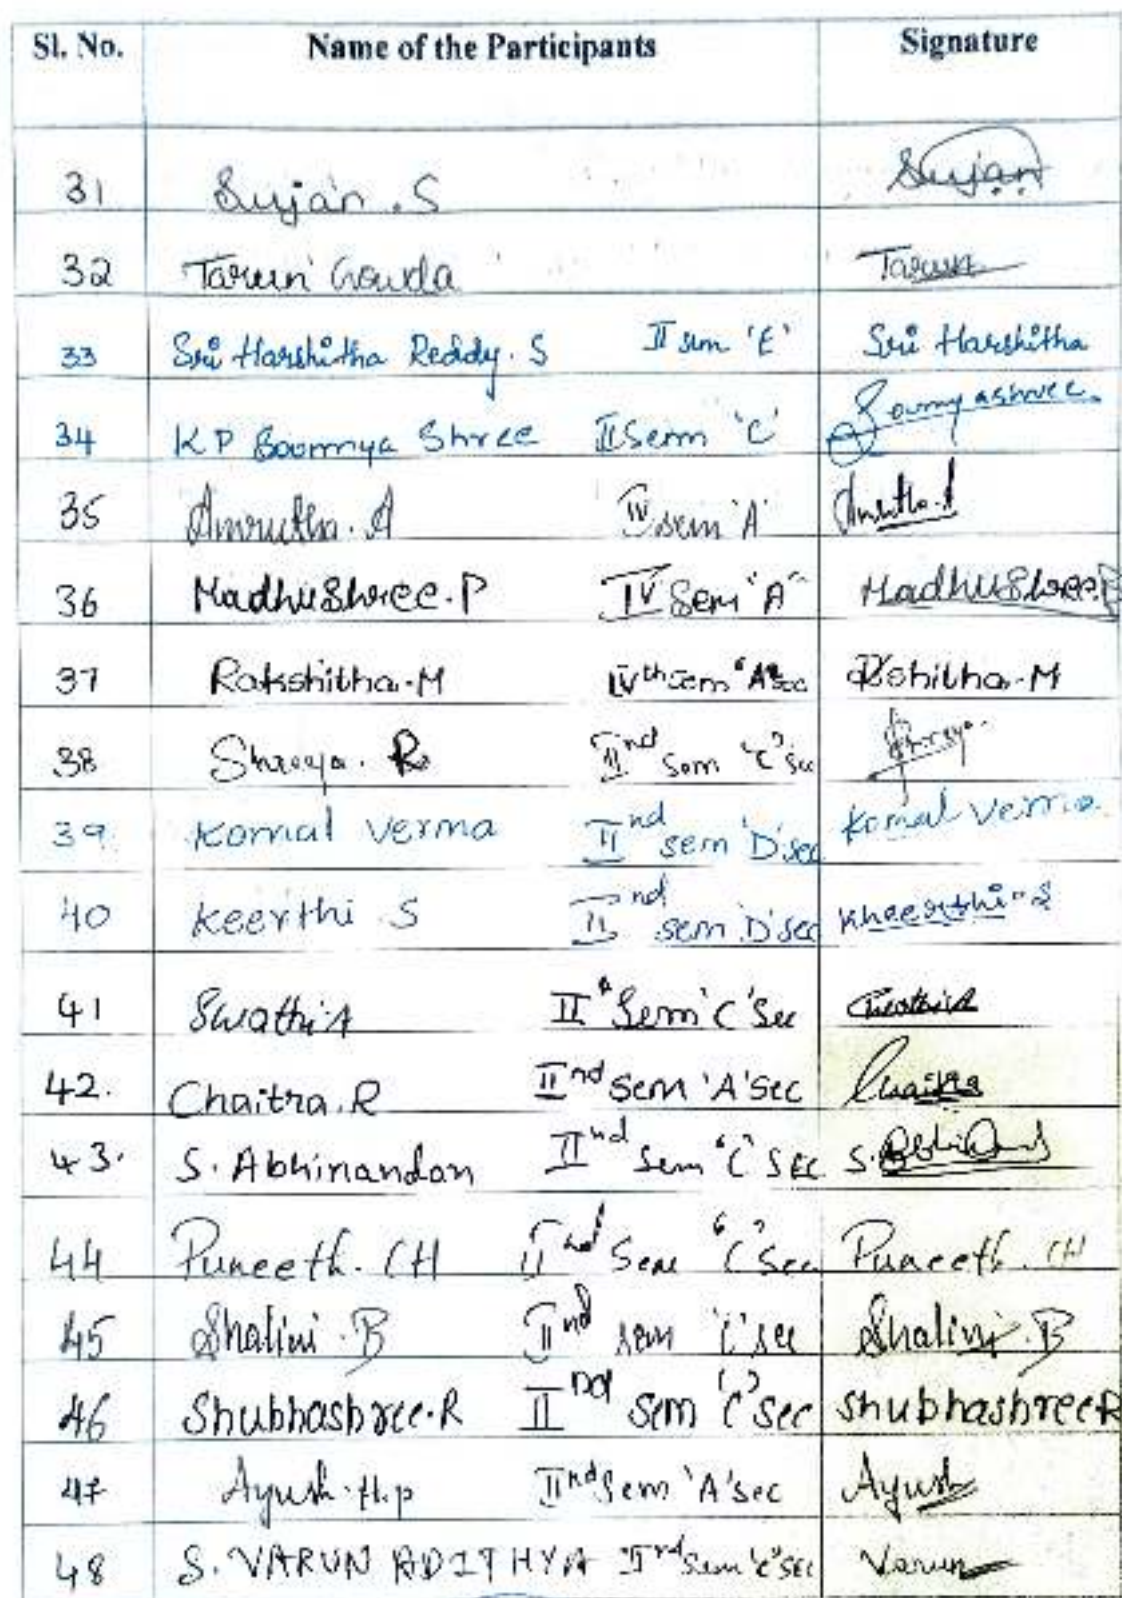 Sl. No. Name of the Participants Signature
31 Sujan .S Sujan
32 Tarun Gowda Tarun
33 Sri Harshitha Reddy. S II sem 'E' Sri Harshitha
34 K P Soumya Shree II Sem 'C' Soumyashree.
35 Amrutha. A IV sem 'A' Amrutha.A
36 MadhuShree.P IV Sem 'A' MadhuShree.P
37 Rakshitha.M IVth sem 'A' sec
38 Shreya. R IInd Sem 'C' Sec Shreya.
39. Komal Verma IInd sem 'D' sec Komal Verma.
40 Keerthi S IInd sem 'D' sec Kheerthi.S
41 Swathi.A II Sem 'C' Sec Swathi.A
42. Chaitra.R IInd Sem 'A' Sec Chaitra
43. S. Abhinandan IInd Sem 'C' SEC S.
44 Puneeth. CH IInd Sem 'C' Sec Puneeth. CH
45 Shalini.B IInd sem 'C' sec Shalini.B
46 Shubhashree.R IInd sem 'C' sec Shubhashree.R
47 Ayush.H.P IInd Sem 'A' sec Ayush
48 S. VARUN ADITHYA Sem 'C' SEC Varun